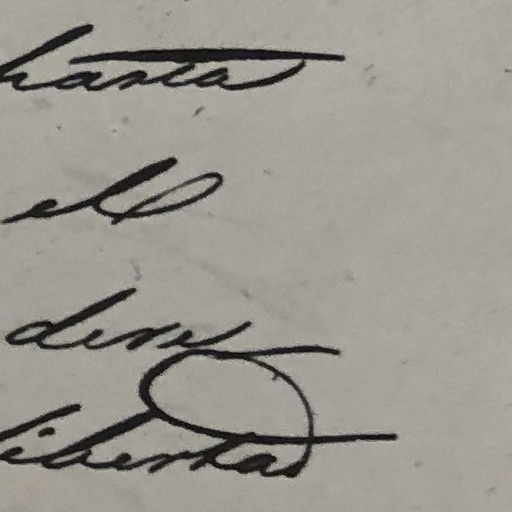 hasta
el
dere
libertad